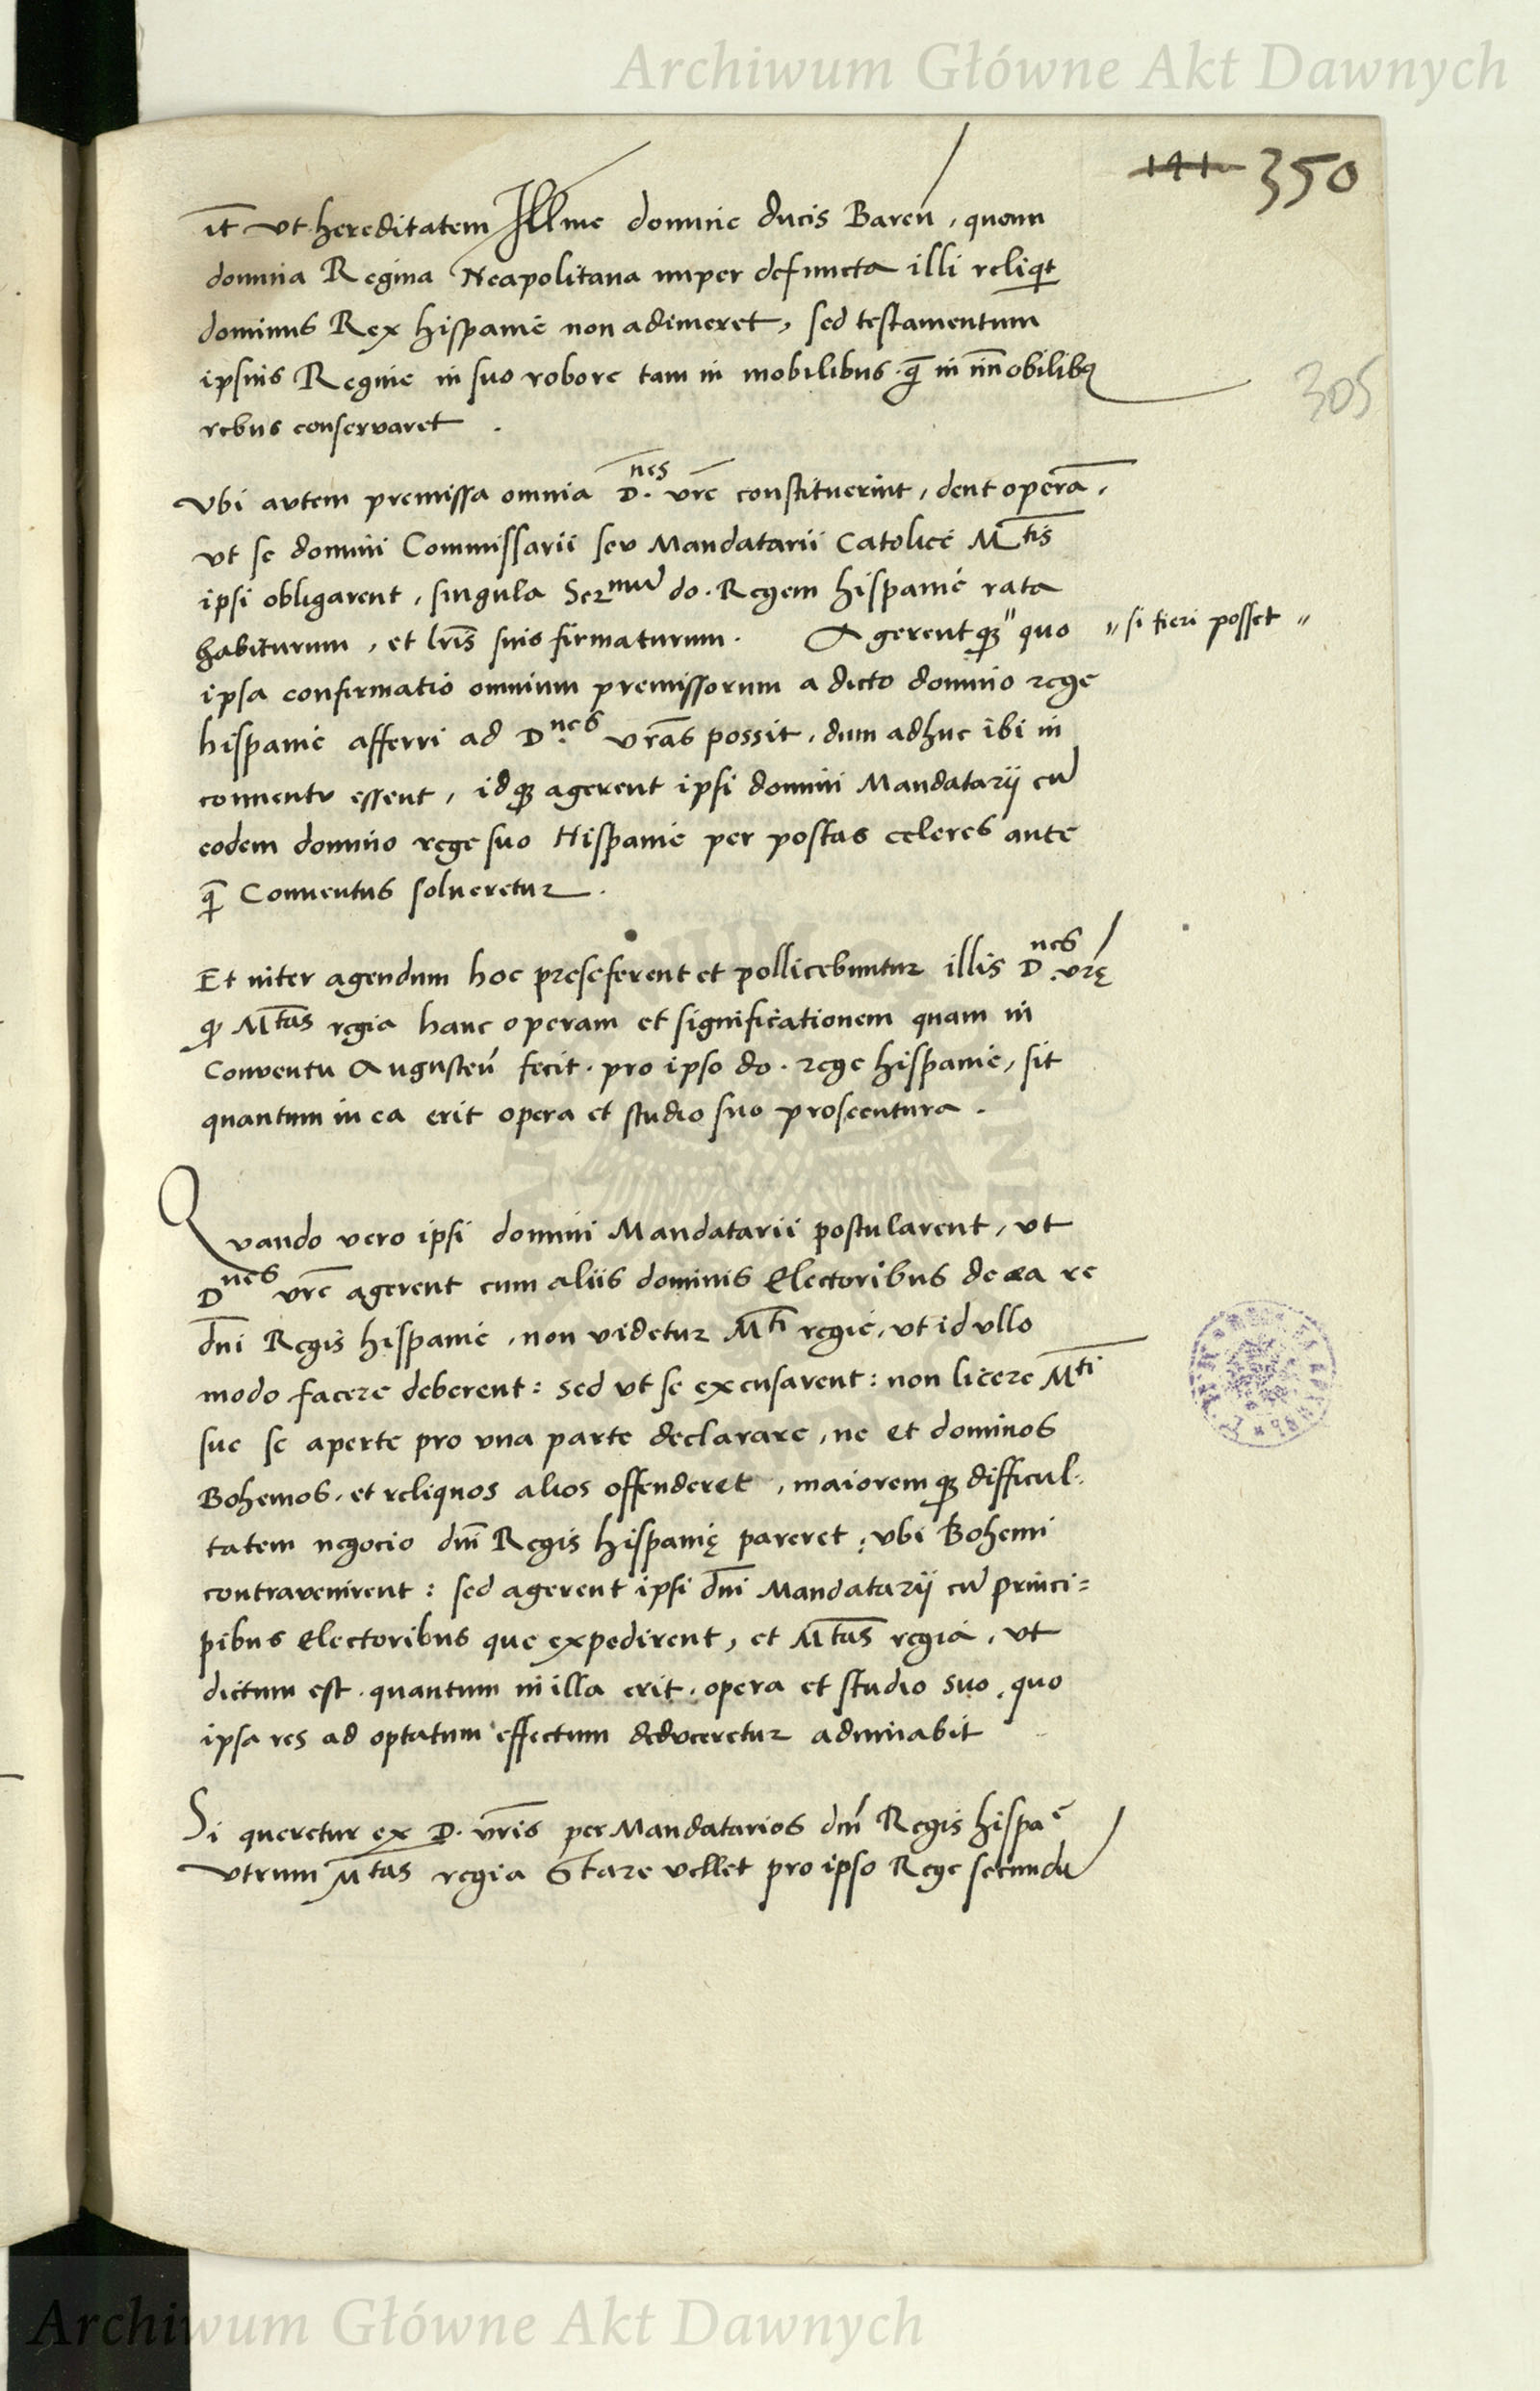 Archiwum Główne Akt Dawnych
141 350
it vt hereditatem Illme domine ducis Baren, quam
domina Regina Neapolitana nuper defuncta illi reliqt
dominus Rex hispanie non adimeret, sed testamentum
ipsius Regine in suo robore tam in mobilibus. q̄ in īmobilibꝫ
305
rebus conservaret .
Vbi autem premissa omnia D.nes vrē constituerint, dent operā,
vt se domini Commissarii seu Mandatarii Catolice Mtis
ipsi obligarent, singula Sermū do. Regem hispanie rata
habiturum, et lris suis firmaturum. Agerentqꝫ " quo " si fieri posset "
ipsa confirmatio omnium premissorum a dicto domino rege
hispanie afferri ad D.nes vras possit, dum adhuc ibi in
conuentu essent, idqꝫ agerent ipsi domini Mandatarij cū
eodem domino rege suo Hispanie per postas celeres ante
q̄ Conuentus solueretur.
Et inter agendum hoc preseferent et pollicebuntur illis D.nes vrę
qꝫ Mtas regia hanc operam et significationem quam in
Conventu Augusteń fecit. pro ipso do. rege hispanie, sit
quantum in ea erit opera et studio suo prosecutura.
Quando vero ipsi domini Mandatarii postularent, vt
Dnes vrē agerent cum aliis dominis Electoribus de ea re
dni Regis hispanie, non videtur Mti regie, vt id vllo
modo facere deberent: sed vt se excusarent: non licere Mti
sue se aperte pro vna parte declarare, ne et dominos
Bohemos, et reliquos alios offenderet, maioremqꝫ difficul-
tatem negocio dni Regis hispanię pareret, vbi Bohemi
contravenirent: sed agerent ipsi dni Mandatarij cū princi=
pibus Electoribus que expedirent, et Mtas regia, vt
dictum est. quantum in illa erit. opera et studio suo, quo
ipsa res ad optatum effectum deduceretur adiuuabit
Si queretur ex D. vris per Mandatarios dni Regis hispaē
vtrum Mtas regia Stare vellet pro ipso Rege secundū
Archiwum Główne Akt Dawnych